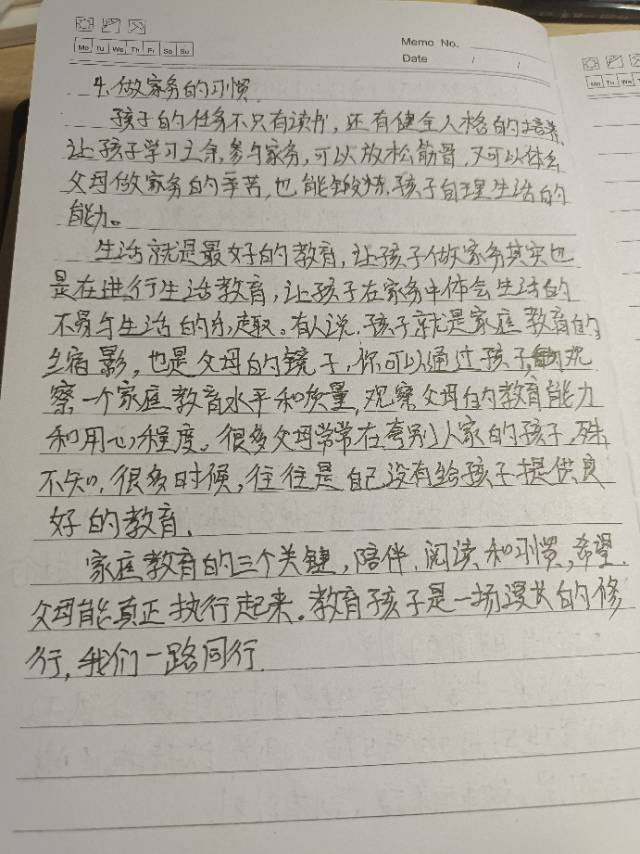 Mo Tu We Th Fr Sa Su
Memo No.
Date / /
4、做家务的习惯.
孩子的任务不只有读书,还有健全人格的培养.
让孩子学习之余,参与家务,可以放松筋骨,又可以体会
父母做家务的辛苦,也能锻炼.孩子自理生活的
能力。
生活就是最好的教育,让孩子做家务其实也
是在进行生活教育,让孩子在家务中体会生活的
不易与生活的乐趣。有人说.孩子就是家庭教育的
缩影,也是父母的镜子,你可以通过孩子,观
察一个家庭教育水平和质量,观察父母的教育能力
和用心程度。很多父母常常在夸别人家的孩子,殊
不知,很多时候,往往是自己没有给孩子提供良
好的教育.
家庭教育的三个关键,陪伴.阅读和习惯,希望.
父母能真正执行起来。教育孩子是一场漫长的修
行,我们一路同行.